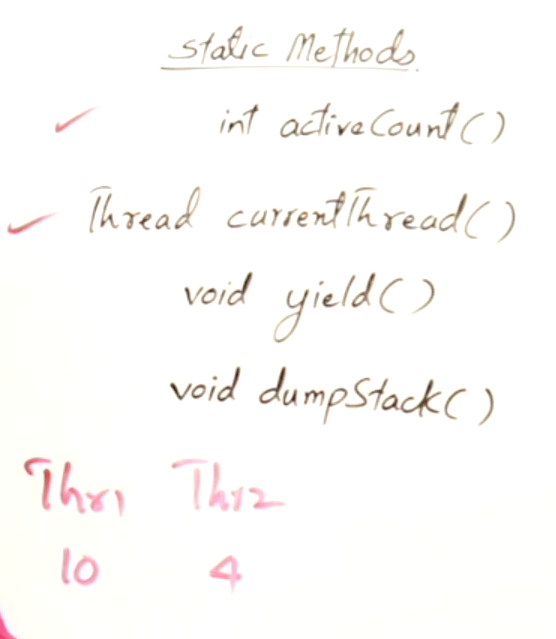 Static Methods
int activeCount()
Thread currentThread()
void yield()
void dumpStack()
Thr1 Thr2
10 4